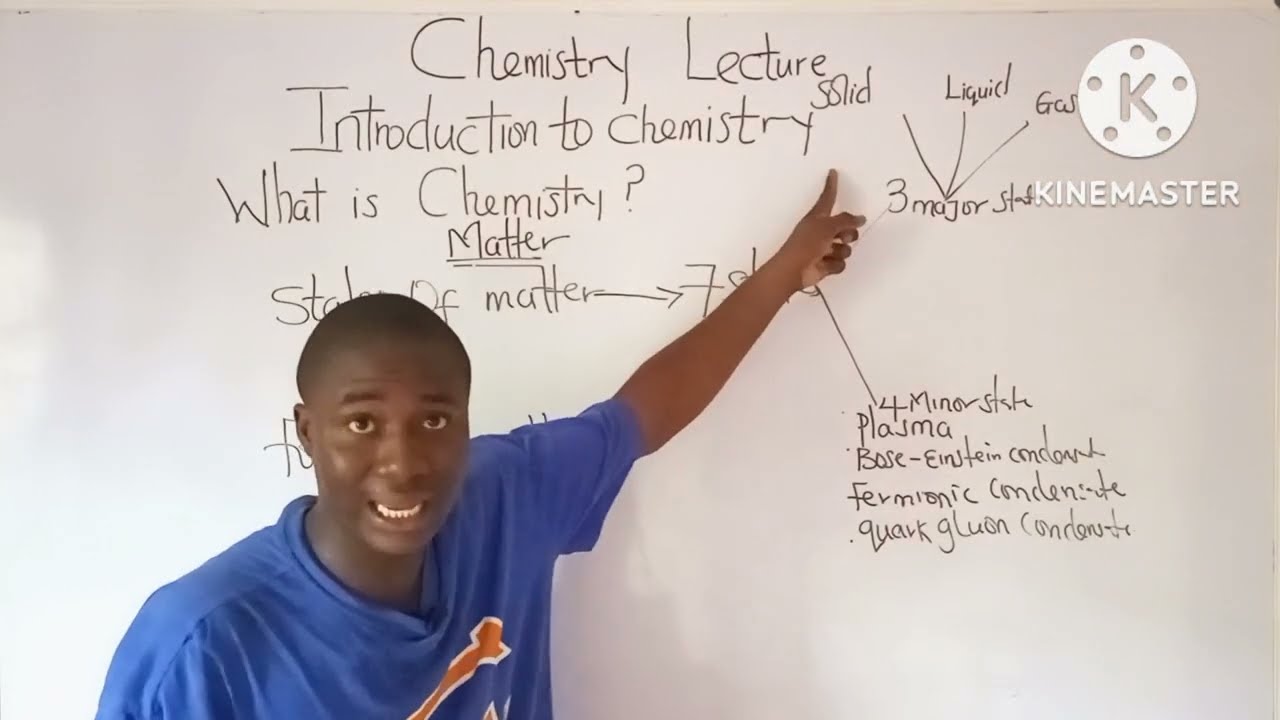 Chemistry Lecture
Introduction to chemistry
What is Chemistry?
Matter
States Of matter → 7
Solid
Liquid
Gas
3 major
4 Minor state
Plasma
Bose-Einstein condensate
Fermionic Condensate
quark gluon Condensate
K
KINEMASTER